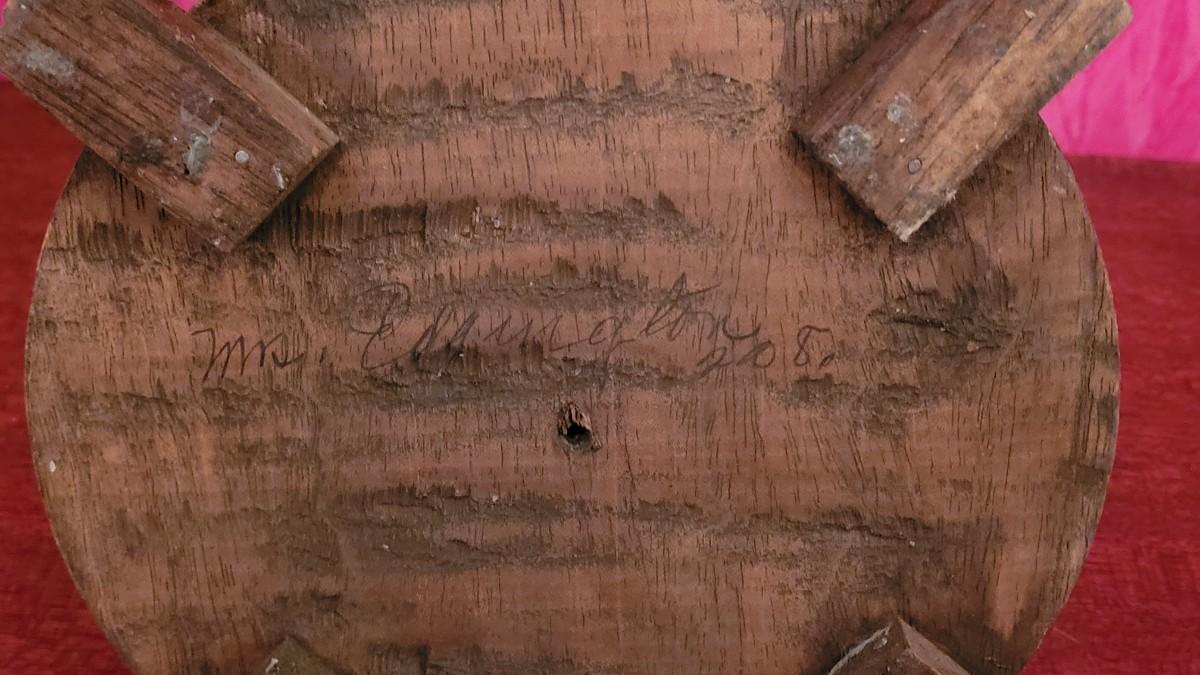 Mrs. Edgington
208.